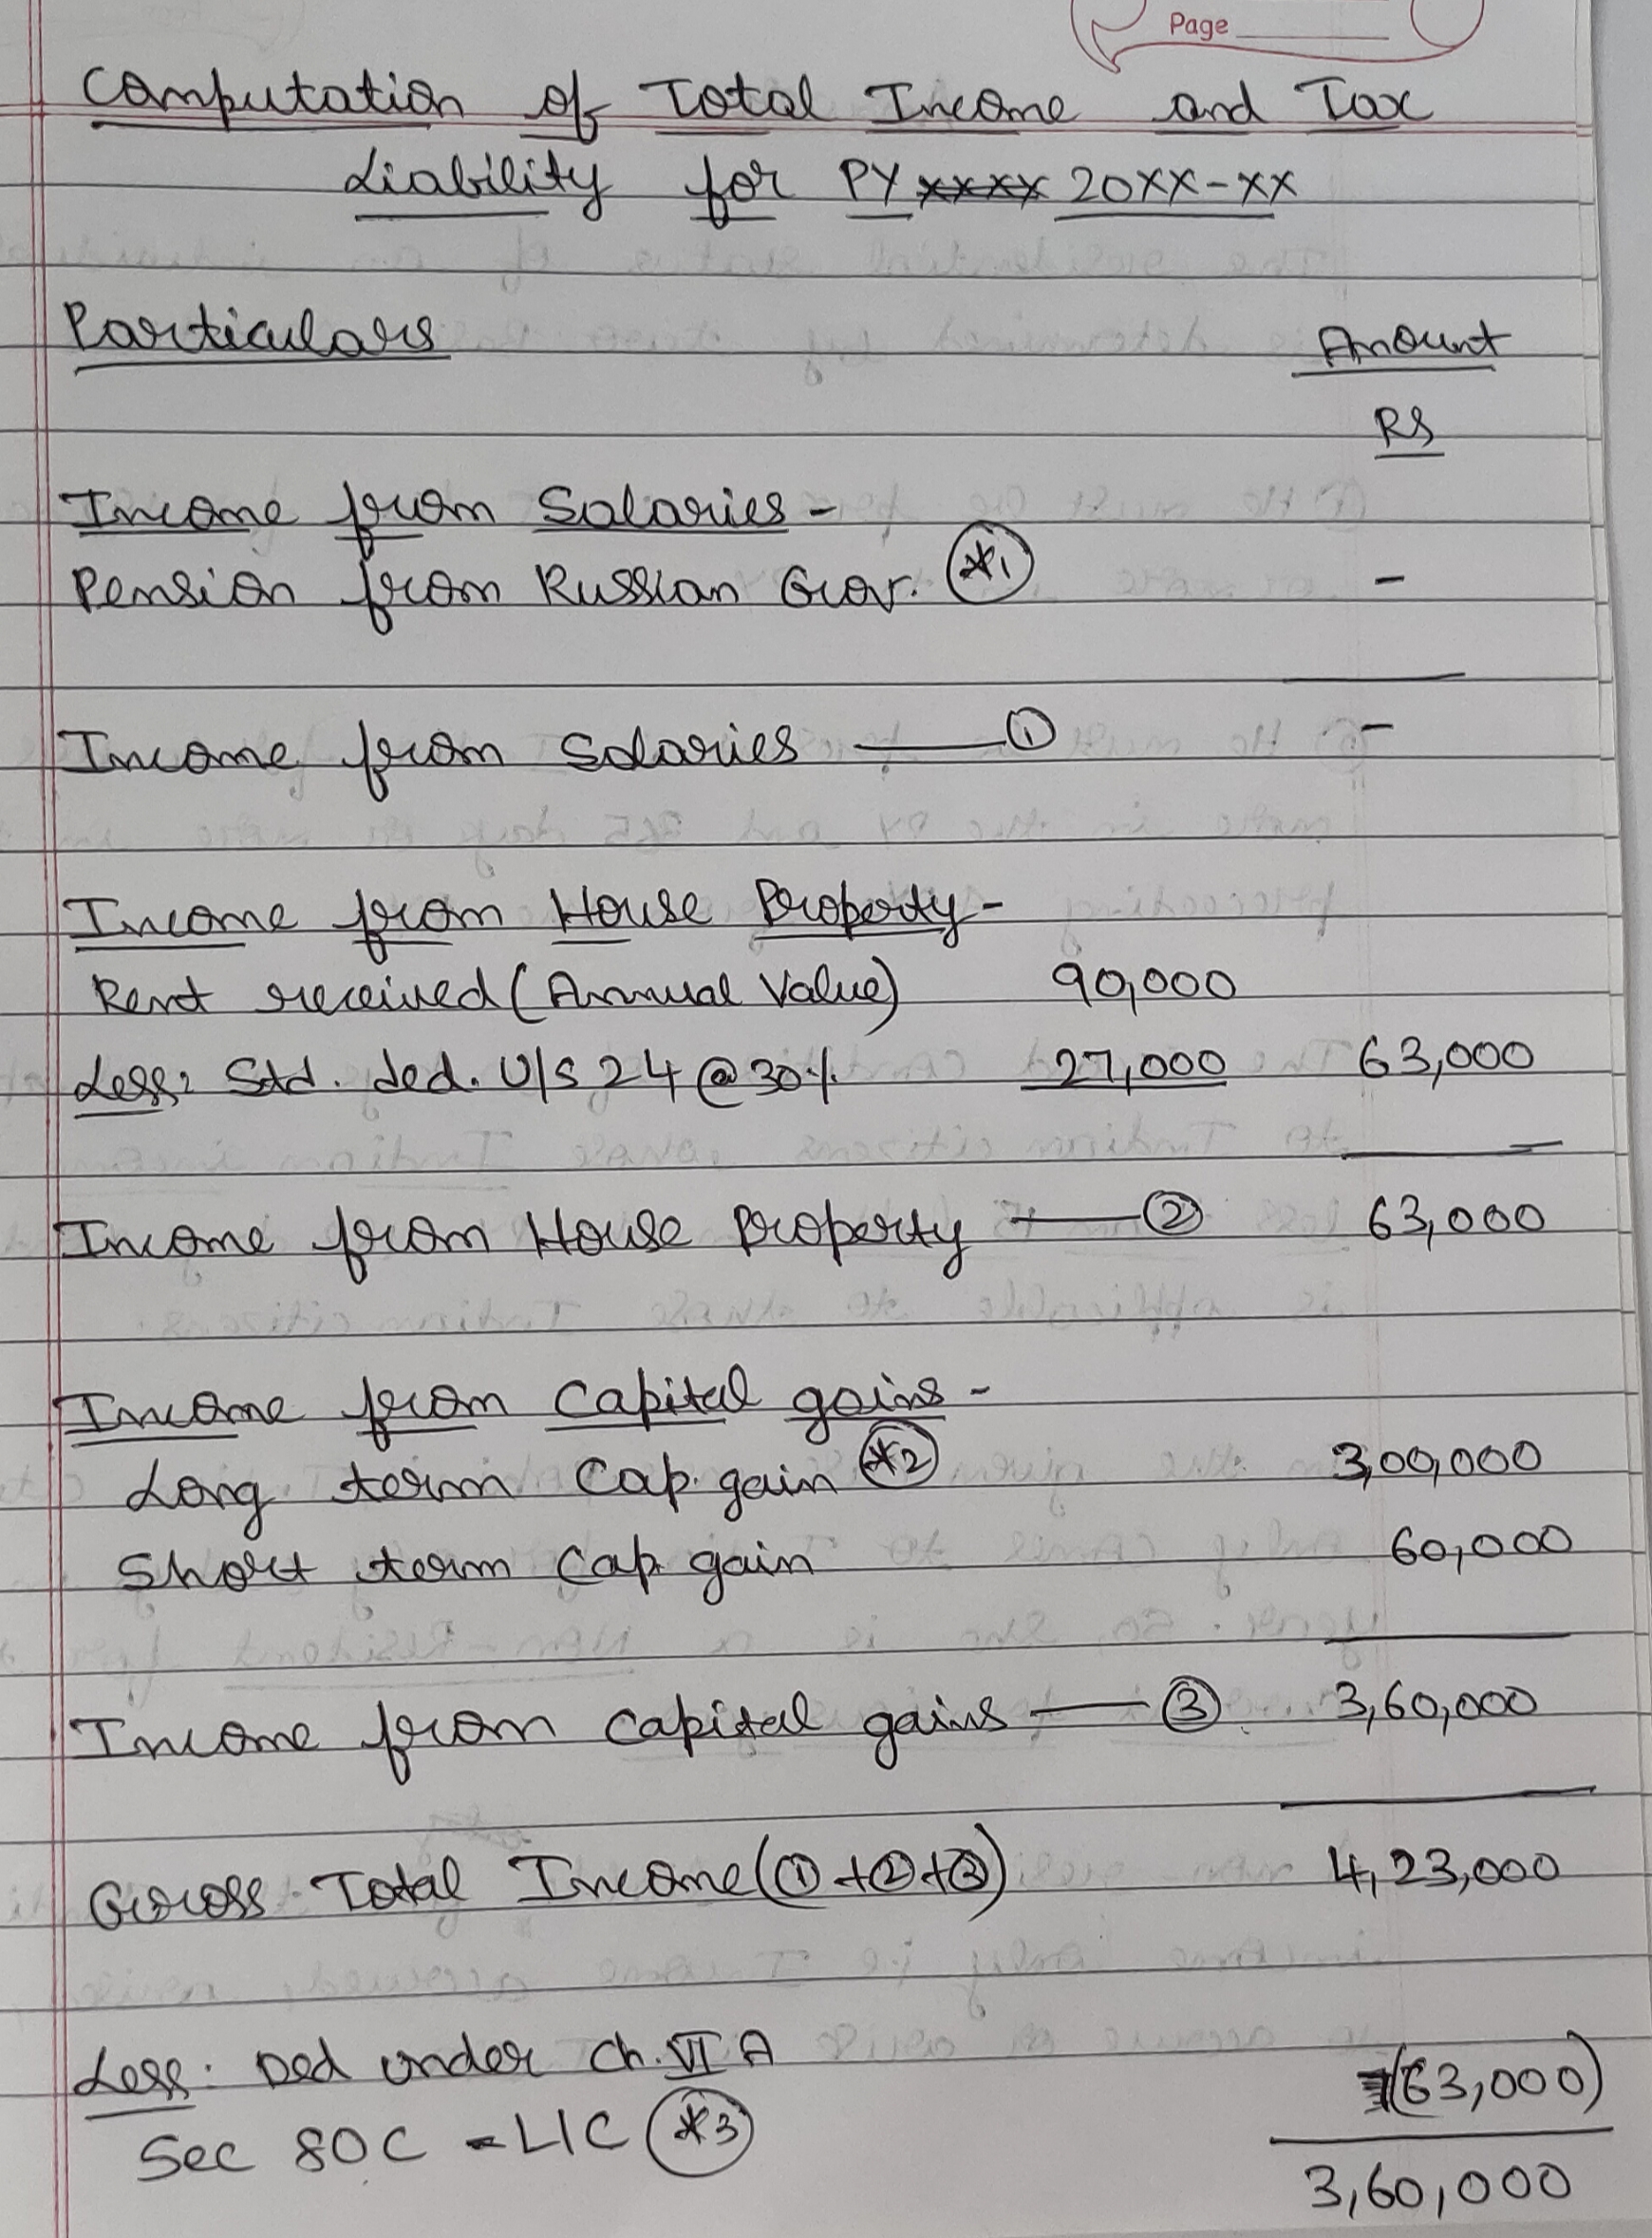 Page
Computation of Total Income and Tax
Liability for PY xxxx 20XX-XX
Particulars Amount
RS
Income from Salaries -
Pension from Russian Gov. *1 -
Income from Salaries — ① -
Income from House Property -
Rent received (Annual Value) 90,000
Less: Std. ded. U/S 24 @ 30% 27,000 63,000
Income from House Property — ② 63,000
Income from Capital gains -
Long term Cap. gain *2 3,00,000
Short term Cap gain 60,000
Income from Capital gains — ③ 3,60,000
Gross Total Income (① + ② + ③) 4,23,000
Less: Ded under Ch. VI A (63,000)
Sec 80C - LIC *3
3,60,000